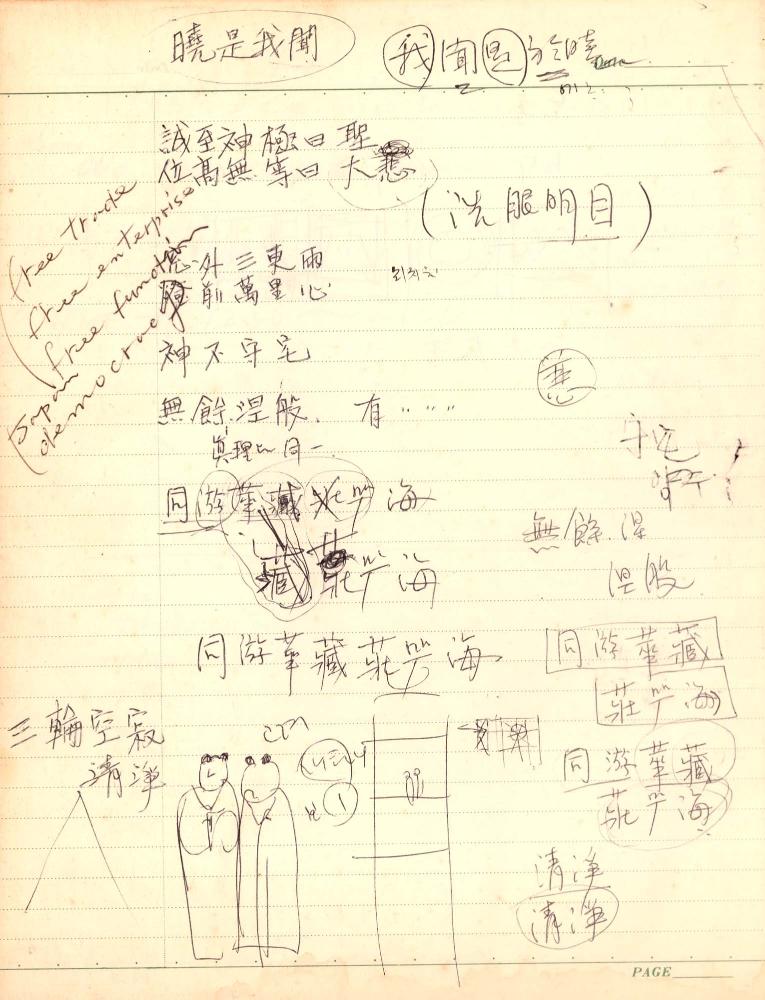 曉是我聞
我聞是於曉
誠至神極曰聖
位高無等曰大悲
(洗眼明目)
free trade
free enterprise
free function
Japan
democracy
窓外三更雨
前萬里心
神不守宅
無餘涅般. 有 " " "
眞理 同一
悲
守宅
同游華藏莊嚴海
藏莊嚴海
無餘.涅
涅般
同游華藏莊嚴海
同游華藏
莊嚴海
三輪空寂
清淨
同游華藏
莊嚴海
清淨
清淨
PAGE